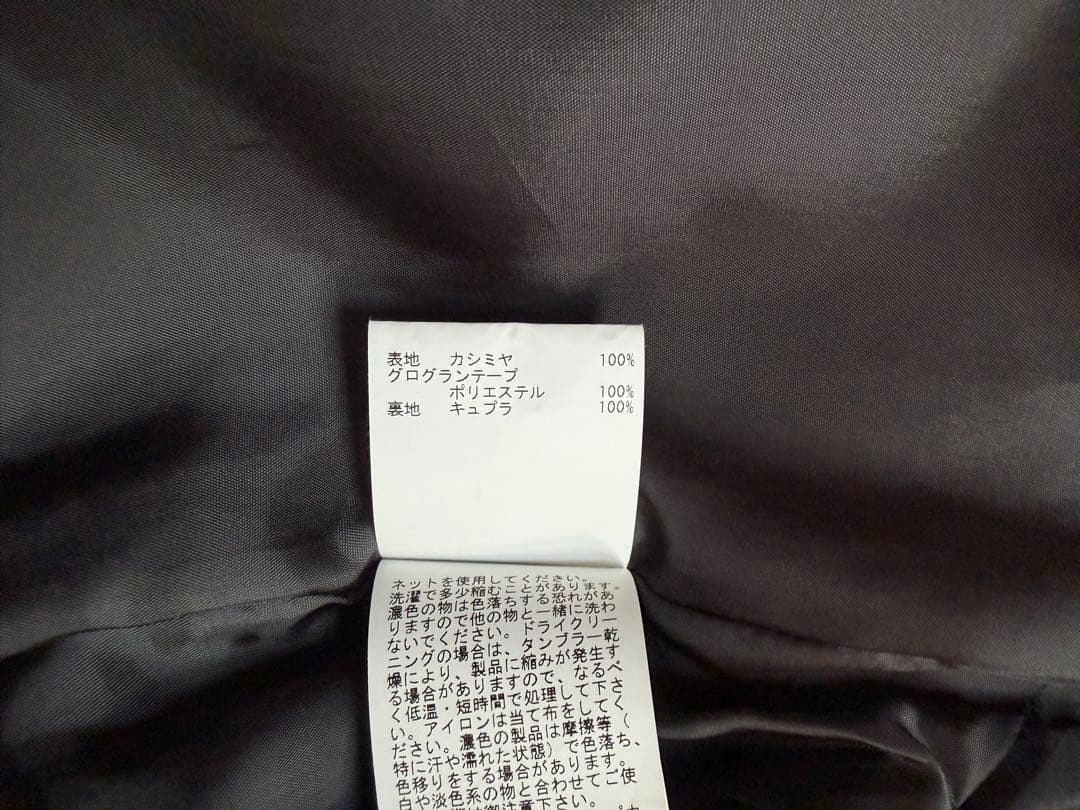 表地 カシミヤ 100%
グログランテープ
ポリエステル 100%
裏地 キュプラ 100%
ネットを使用してください。
洗濯で多少縮むことがあります。
濃色の物は色落ちする恐れがあ
りますので他の物と一緒に洗わ
ないでください。ドライクリー
ニングの場合は、タンブラー乾
燥により、製品に縮みが発生す
る場合がありますので、なるべ
く低温・短時間で処理して下さ
い。アイロンは当て布をしてく
ださい。濃色の製品は摩擦等(
特に汗や濡れた状態)で色落ち、
色移りをする場合があります。
白や淡色系の物と合わせてご使